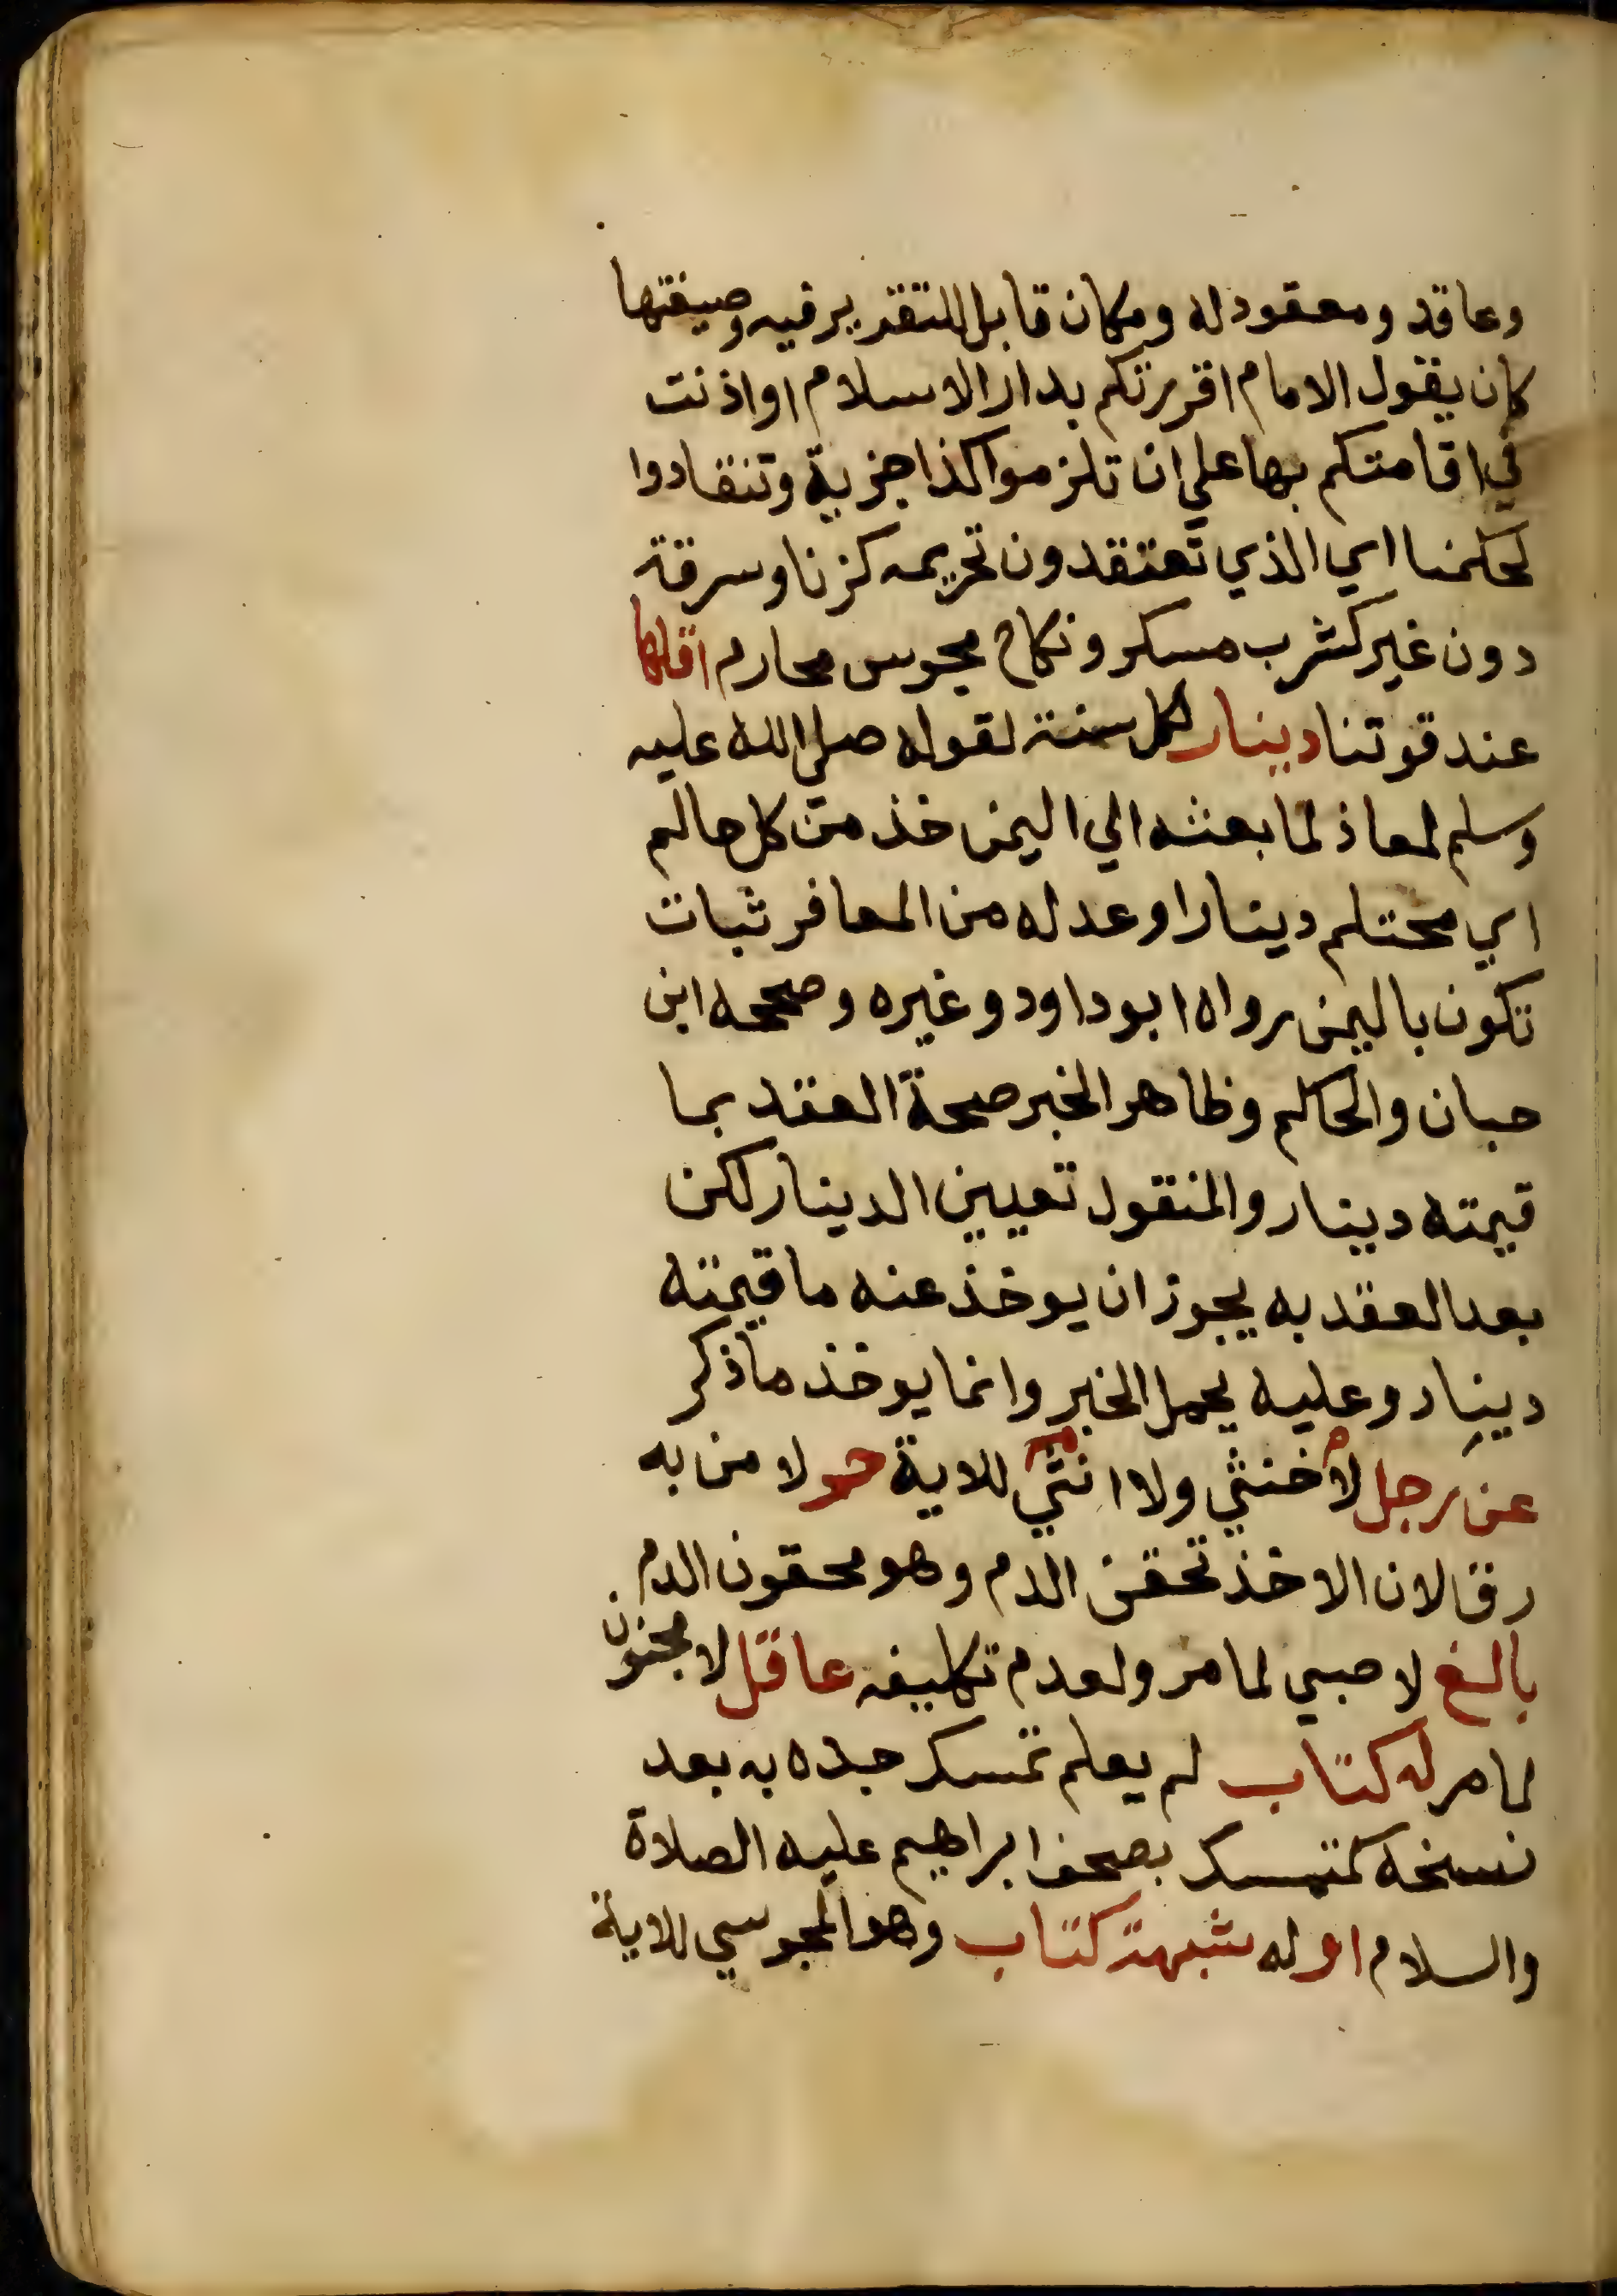 وعاقد ومعقود له ومكان قابل للتقرير فيه وصيغتها
كان يقول الامام اقررتكم بدار الاسلام او اذنت
في اقامتكم بها علي ان تلزموا كذا جزية وتنقادوا
لحكمنا اي الذي تعتقدون تحريمه كزنا وسرقة
دون غير كشرب مسكر ونكاح مجوس محارم اقلها
عند قوتنا دينار لكل سنة لقوله صلي الله عليه
وسلم لمعاذ لما بعثه الي اليمن خذ من كل حالم
اي محتلم دينارا او عدله من المعافر ثياب
تكون باليمن رواه ابو داود وغيره وصححه ابن
حبان والحاكم وظاهر الخبر صحة العقد بما
قيمته دينار والمنقول تعيين الدينار لكن
بعد العقد به يجوز ان يوخذ عنه ما قيمته
دينار وعليه يحمل الخبر وانما يوخذ ما ذكر
عن رجل لا خنثي ولا انثي للاية حر لا من به
رق لان الاخذ تحقن الدم وهو محقون الدم
بالغ لا صبي لما مر ولعدم تكليفه عاقل لا مجنون
لما مر له كتاب لم يعلم تمسك جده به بعد
نسخه كمتمسك بصحف ابراهيم عليه الصلاة
والسلام او له شبهة كتاب وهو المجوسي للاية